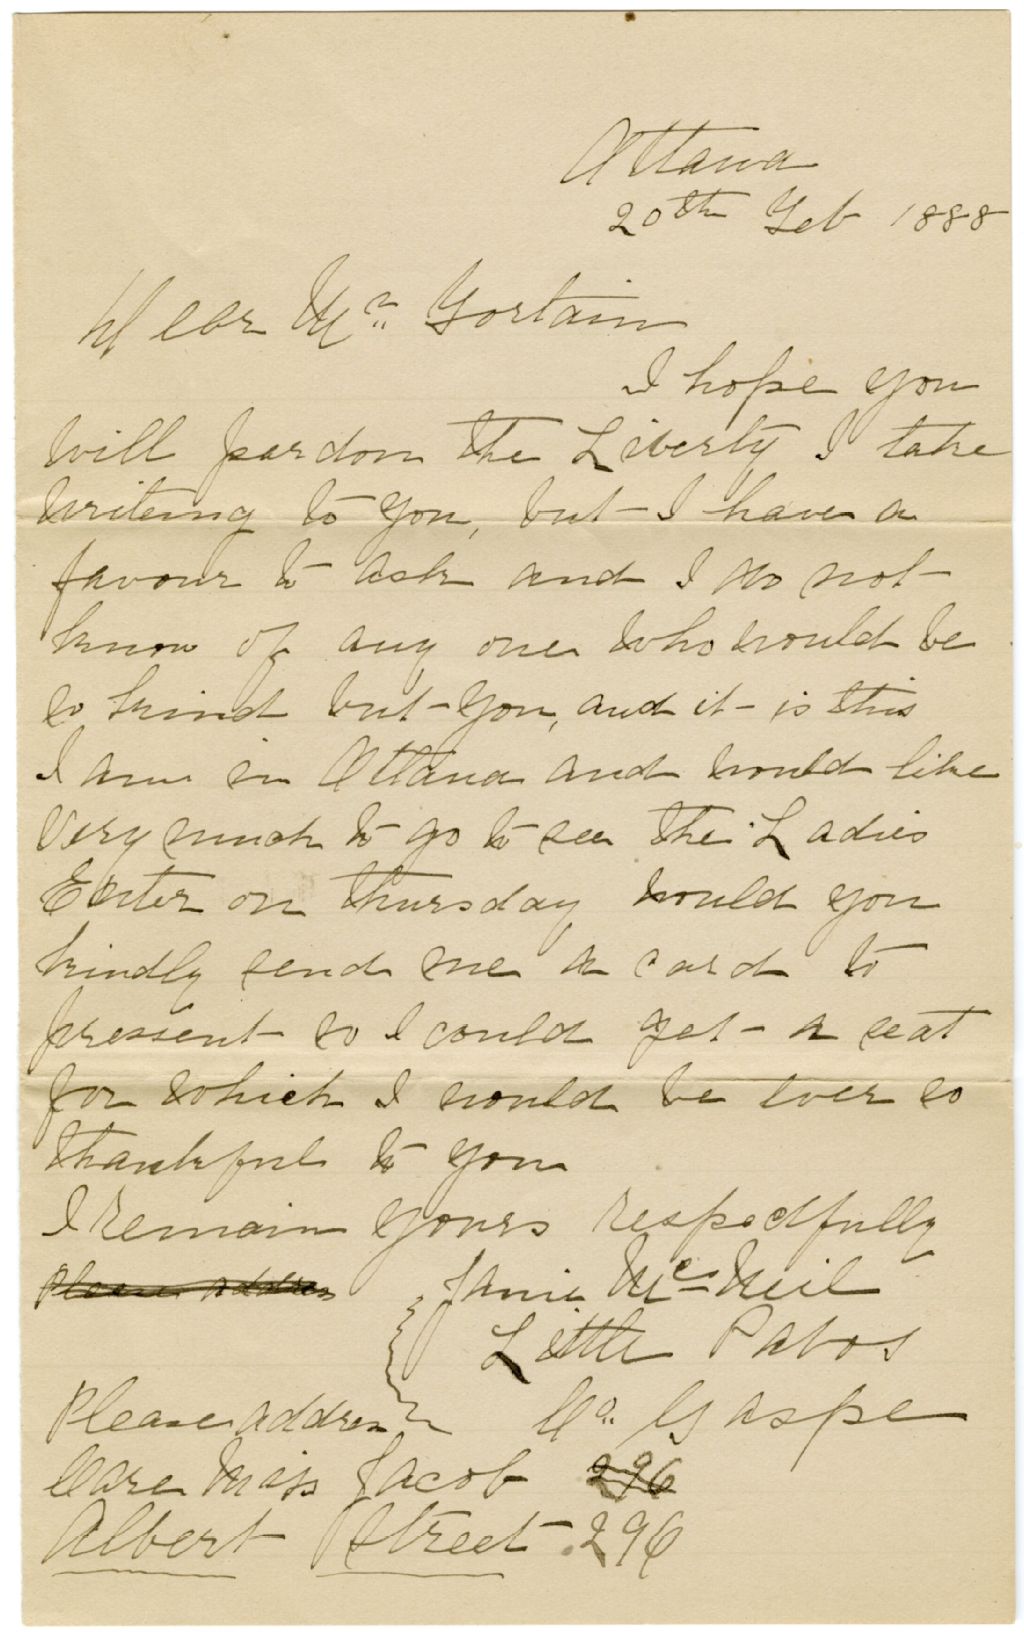 Ottawa
20th Feb 1888
Dear Mr. Gortain
I hope you
will pardon the Liberty I take
writeing to you, but I have a
favour to ask and I do not
know of any one who would be
so kind but you, and it is this
I am in Ottawa and would like
Very much to go to see the Ladies
Enter on thursday, would you
kindly send me a card to
pressent so I could get a seat
for which I would be ever so
thankful to you
I remain yours respectfully
Please address Janie McNeil
Little Pabos
Please address Co. Gaspe
Care Miss Jacob 296
Albert Street 296